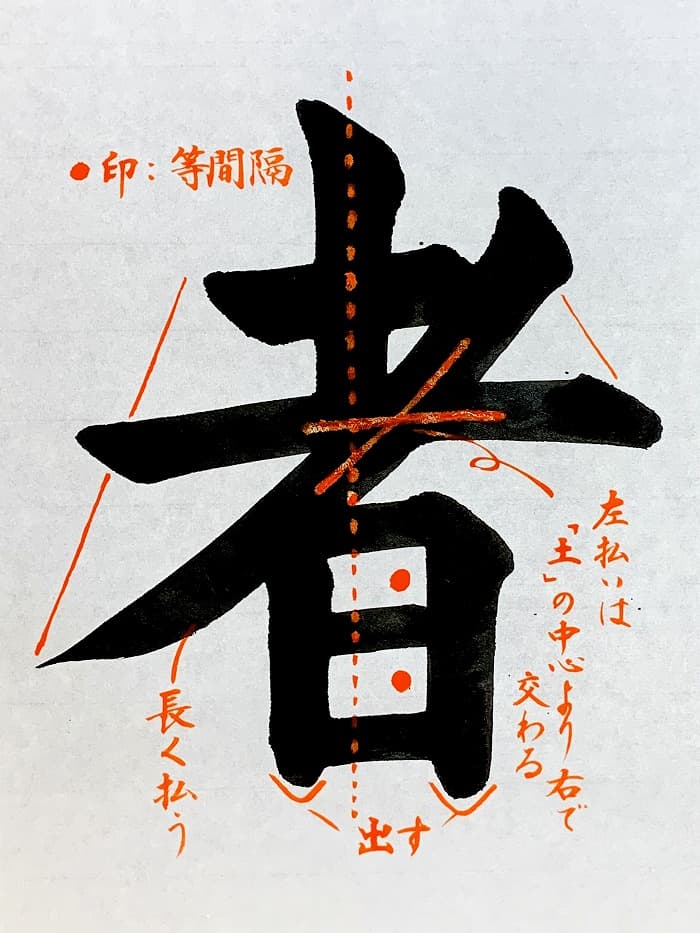 ●印：等間隔
者
左払いは
「土」の中心より右で
交わる
長く払う
出す